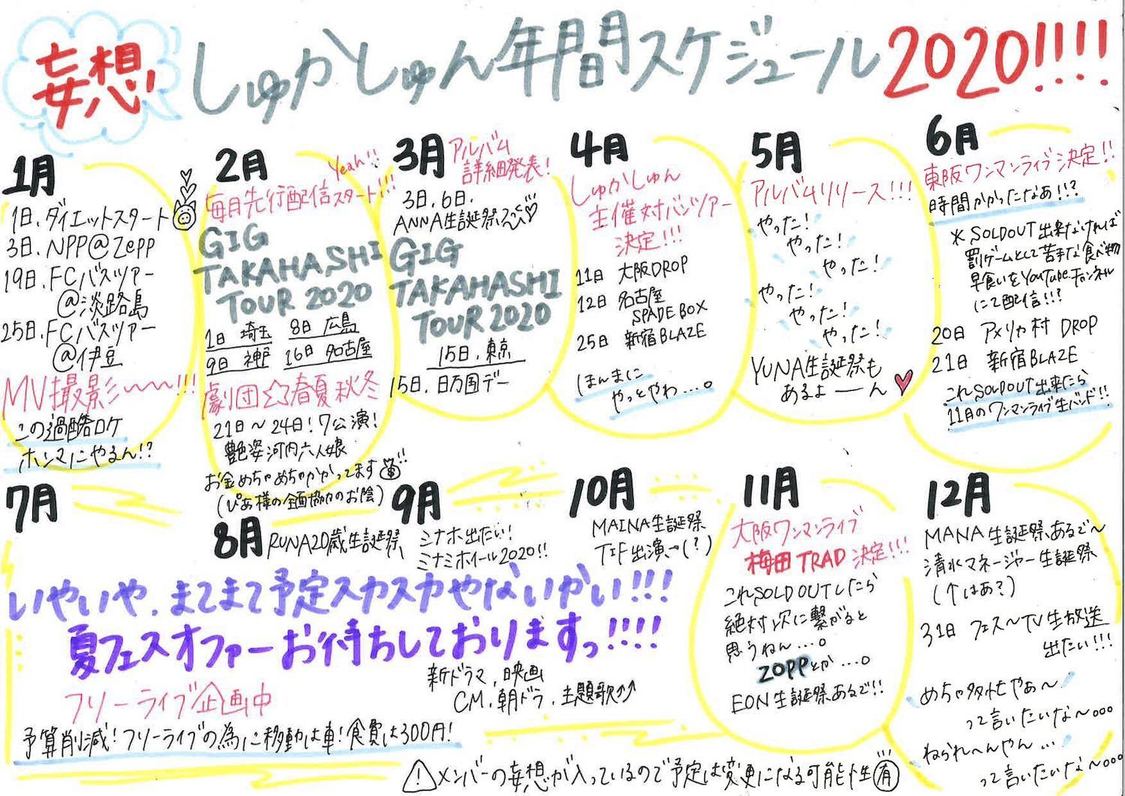 妄想!
しゅかしゅん年間スケジュール2020!!!!
1月
1日.ダイエットスタート
3日.NPP@Zepp
19日.FCバスツアー
@淡路島
25日.FCバスツアー
@伊豆
MV撮影〜〜!!!
この過酷ロケ
ホンマにやるん!?
2月
Yeah!!
毎月先行配信スタート!!!
GIG
TAKAHASHI
TOUR 2020
1日 埼玉 8日 広島
9日 神戸 16日 名古屋
劇団☆春夏秋冬
21日〜24日!7公演!
艶姿河内六人娘
お金めちゃめちゃかかってます!!
(ぴあ様の企画協力のお陰)
3月 アルバム
詳細発表!
3日.6日.
ANNA生誕祭♡
GIG
TAKAHASHI
TOUR 2020
15日.東京
15日.日万国デー
4月
しゅかしゅん
主催対バンツアー
決定!!!
11日 大阪DROP
12日 名古屋
SPADE BOX
25日 新宿BLAZE
(ほんまに
やっとやわ...。
5月
アルバムリリース!!!
やった!
やった!
やった!
やった!
やった!
やった!
YUNA生誕祭も
あるよーーん♥
6月
東阪ワンマンライブ決定!!
時間かかったなぁ!!?
※SOLDOUT出来なければ
罰ゲームとして苦手な食べ物
早食いをYouTubeチャンネル
にて配信!!!
20日 アメリカ村 DROP
21日 新宿BLAZE
これSOLDOUT出来たら
11月のワンマンライブ生バンド!!
7月
8月 RUNA20歳生誕祭
9月
ミナホ出たい!
ミナミホイール2020!!
10月
MAINA生誕祭
TIF出演→(?)
いやいや.まてまて予定スカスカやないかい!!!
夏フェスオファーお待ちしておりますっ!!!!
フリーライブ企画中
予算削減!フリーライブの為に移動は車!食費は300円!
新ドラマ.映画
CM.朝ドラ.主題歌↑↑
11月
大阪ワンマンライブ
梅田TRAD決定!!!
これSOLD OUTしたら
絶対次に繋がると
思うねん...。
ZOPPとか...。
EON生誕祭あるで!!
12月
MANA生誕祭あるで〜
清水マネージャー生誕祭
(↑はあ?)
31日 フェス〜TV生放送
出たい!!!
めちゃ多忙やぁ〜
って言いたいな〜。。。
ねられへんやん...
って言いたいな〜。。。
⚠メンバーの妄想が入っているので予定は変更になる可能性有